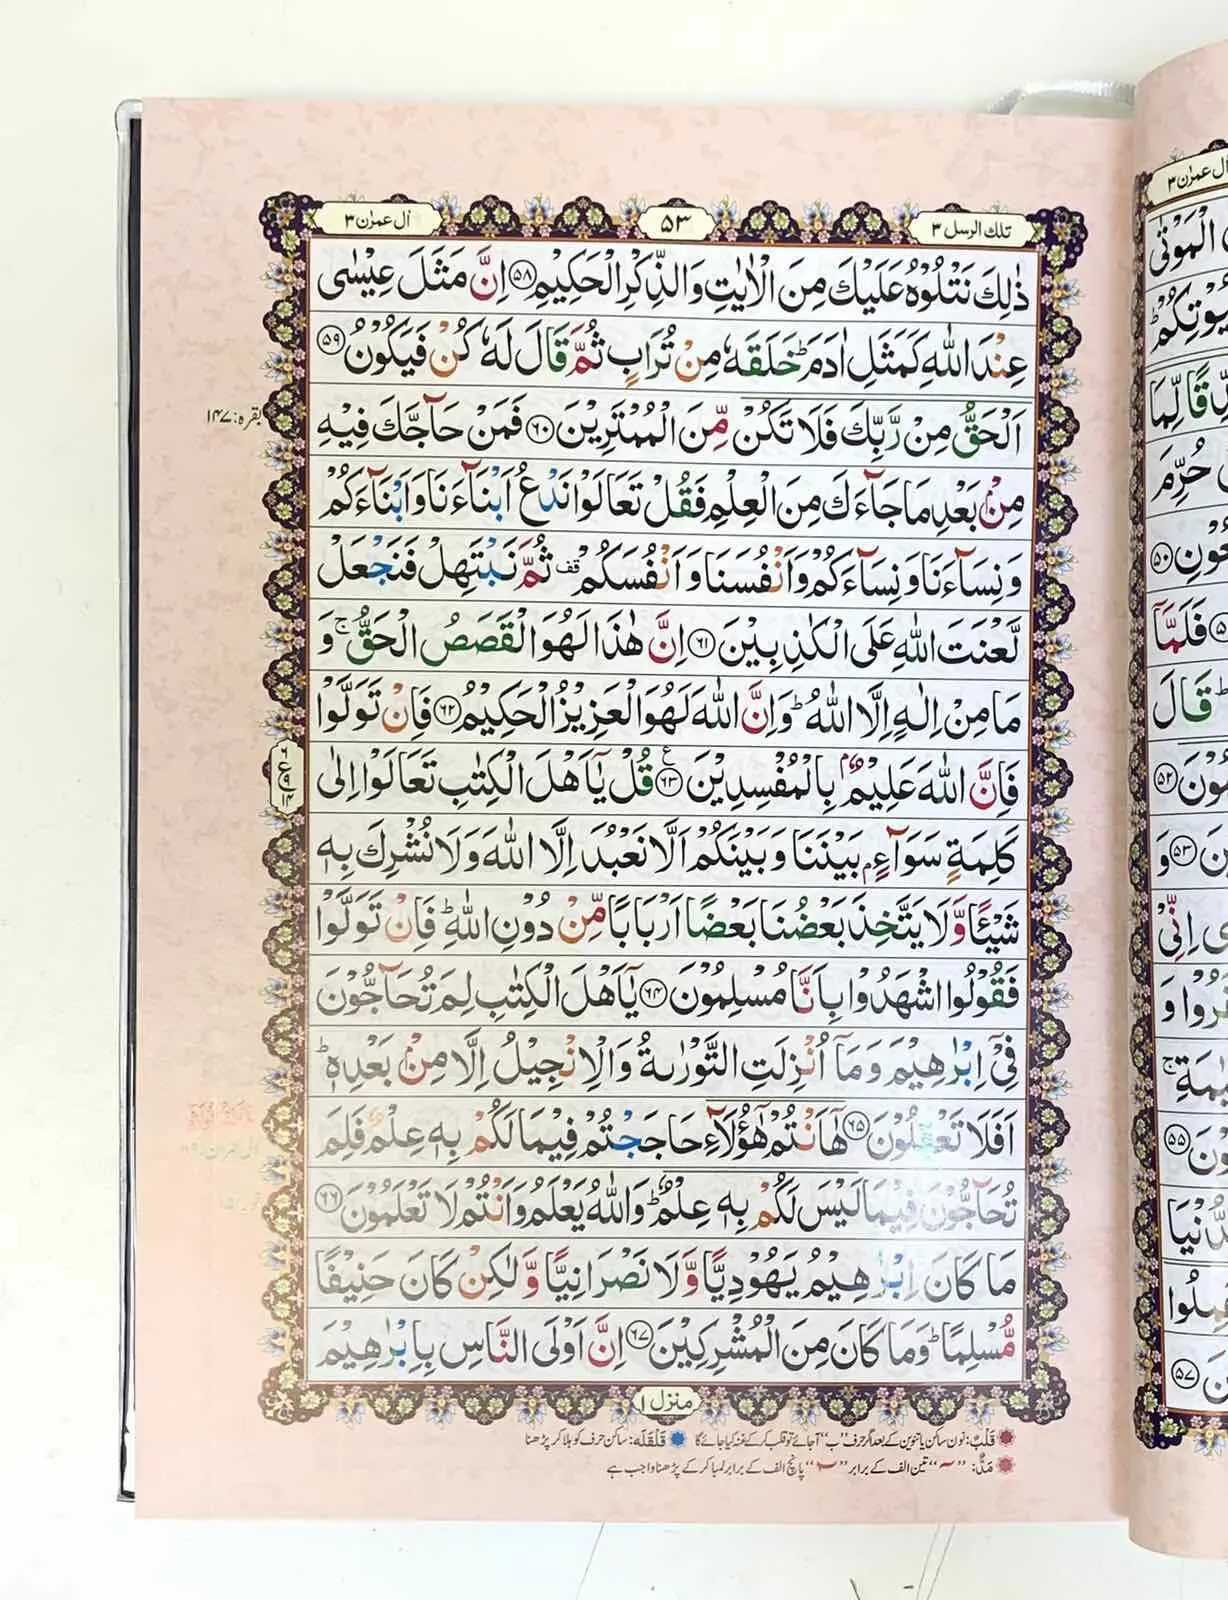 اٰل عمرٰن ۳
۵۳
تلك الرسل ۳
ذٰلِكَ نَتْلُوْهُ عَلَيْكَ مِنَ الْاٰيٰتِ وَالذِّكْرِ الْحَكِيْمِ ﴿۵۸﴾ اِنَّ مَثَلَ عِيْسٰى
عِنْدَ اللّٰهِ كَمَثَلِ اٰدَمَ ؕ خَلَقَهٗ مِنْ تُرَابٍ ثُمَّ قَالَ لَهٗ كُنْ فَيَكُوْنُ ﴿۵۹﴾
اَلْحَقُّ مِنْ رَّبِّكَ فَلَا تَكُنْ مِّنَ الْمُمْتَرِيْنَ ﴿۶۰﴾ فَمَنْ حَآجَّكَ فِيْهِ
مِنْۢ بَعْدِ مَا جَآءَكَ مِنَ الْعِلْمِ فَقُلْ تَعَالَوْا نَدْعُ اَبْنَآءَنَا وَاَبْنَآءَكُمْ
وَنِسَآءَنَا وَنِسَآءَكُمْ وَاَنْفُسَنَا وَاَنْفُسَكُمْ قف ثُمَّ نَبْتَهِلْ فَنَجْعَلْ
لَّعْنَتَ اللّٰهِ عَلَى الْكٰذِبِيْنَ ﴿۶۱﴾ اِنَّ هٰذَا لَهُوَ الْقَصَصُ الْحَقُّ ۚ وَ
مَا مِنْ اِلٰهٍ اِلَّا اللّٰهُ ؕ وَاِنَّ اللّٰهَ لَهُوَ الْعَزِيْزُ الْحَكِيْمُ ﴿۶۲﴾ فَاِنْ تَوَلَّوْا
فَاِنَّ اللّٰهَ عَلِيْمٌۢ بِالْمُفْسِدِيْنَ ﴿۶۳﴾ ع قُلْ يٰۤاَهْلَ الْكِتٰبِ تَعَالَوْا اِلٰى
كَلِمَةٍ سَوَآءٍۢ بَيْنَنَا وَبَيْنَكُمْ اَلَّا نَعْبُدَ اِلَّا اللّٰهَ وَلَا نُشْرِكَ بِهٖ
شَيْـًٔا وَّلَا يَتَّخِذَ بَعْضُنَا بَعْضًا اَرْبَابًا مِّنْ دُوْنِ اللّٰهِ ؕ فَاِنْ تَوَلَّوْا
فَقُوْلُوا اشْهَدُوْا بِاَنَّا مُسْلِمُوْنَ ﴿۶۴﴾ يٰۤاَهْلَ الْكِتٰبِ لِمَ تُحَآجُّوْنَ
فِيْۤ اِبْرٰهِيْمَ وَمَاۤ اُنْزِلَتِ التَّوْرٰىةُ وَالْاِنْجِيْلُ اِلَّا مِنْۢ بَعْدِهٖ ؕ
اَفَلَا تَعْقِلُوْنَ ﴿۶۵﴾ هٰۤاَنْتُمْ هٰۤؤُلَآءِ حَاجَجْتُمْ فِيْمَا لَكُمْ بِهٖ عِلْمٌ فَلِمَ
تُحَآجُّوْنَ فِيْمَا لَيْسَ لَكُمْ بِهٖ عِلْمٌ ؕ وَاللّٰهُ يَعْلَمُ وَاَنْتُمْ لَا تَعْلَمُوْنَ ﴿۶۶﴾
مَا كَانَ اِبْرٰهِيْمُ يَهُوْدِيًّا وَّلَا نَصْرَانِيًّا وَّلٰكِنْ كَانَ حَنِيْفًا
مُّسْلِمًا ؕ وَمَا كَانَ مِنَ الْمُشْرِكِيْنَ ﴿۶۷﴾ اِنَّ اَوْلَى النَّاسِ بِاِبْرٰهِيْمَ
منزل ۱
قَلْبٌ: نون ساکن یا تنوین کے بعد اگر حرف "ب" آجائے تو قلب کر کے غنہ کیا جائے گا قَلْقَلَه: ساکن حرف کو ہلا کر پڑھنا
مَدٌّ: "ۤ" تین الف کے برابر "ٓ" پانچ الف کے برابر لمبا کر کے پڑھنا واجب ہے
بقرہ: ۱۴۷
۶
ع ۹
۱۴
اٰل عمرٰن ۳
الْمَوْتٰى
حُرِّمَ
﴿۵۰﴾
فَلَمَّآ
قَالَ
﴿۵۲﴾
﴿۵۳﴾ وَ
اِنِّيْ
﴿۵۵﴾
﴿۵۷﴾